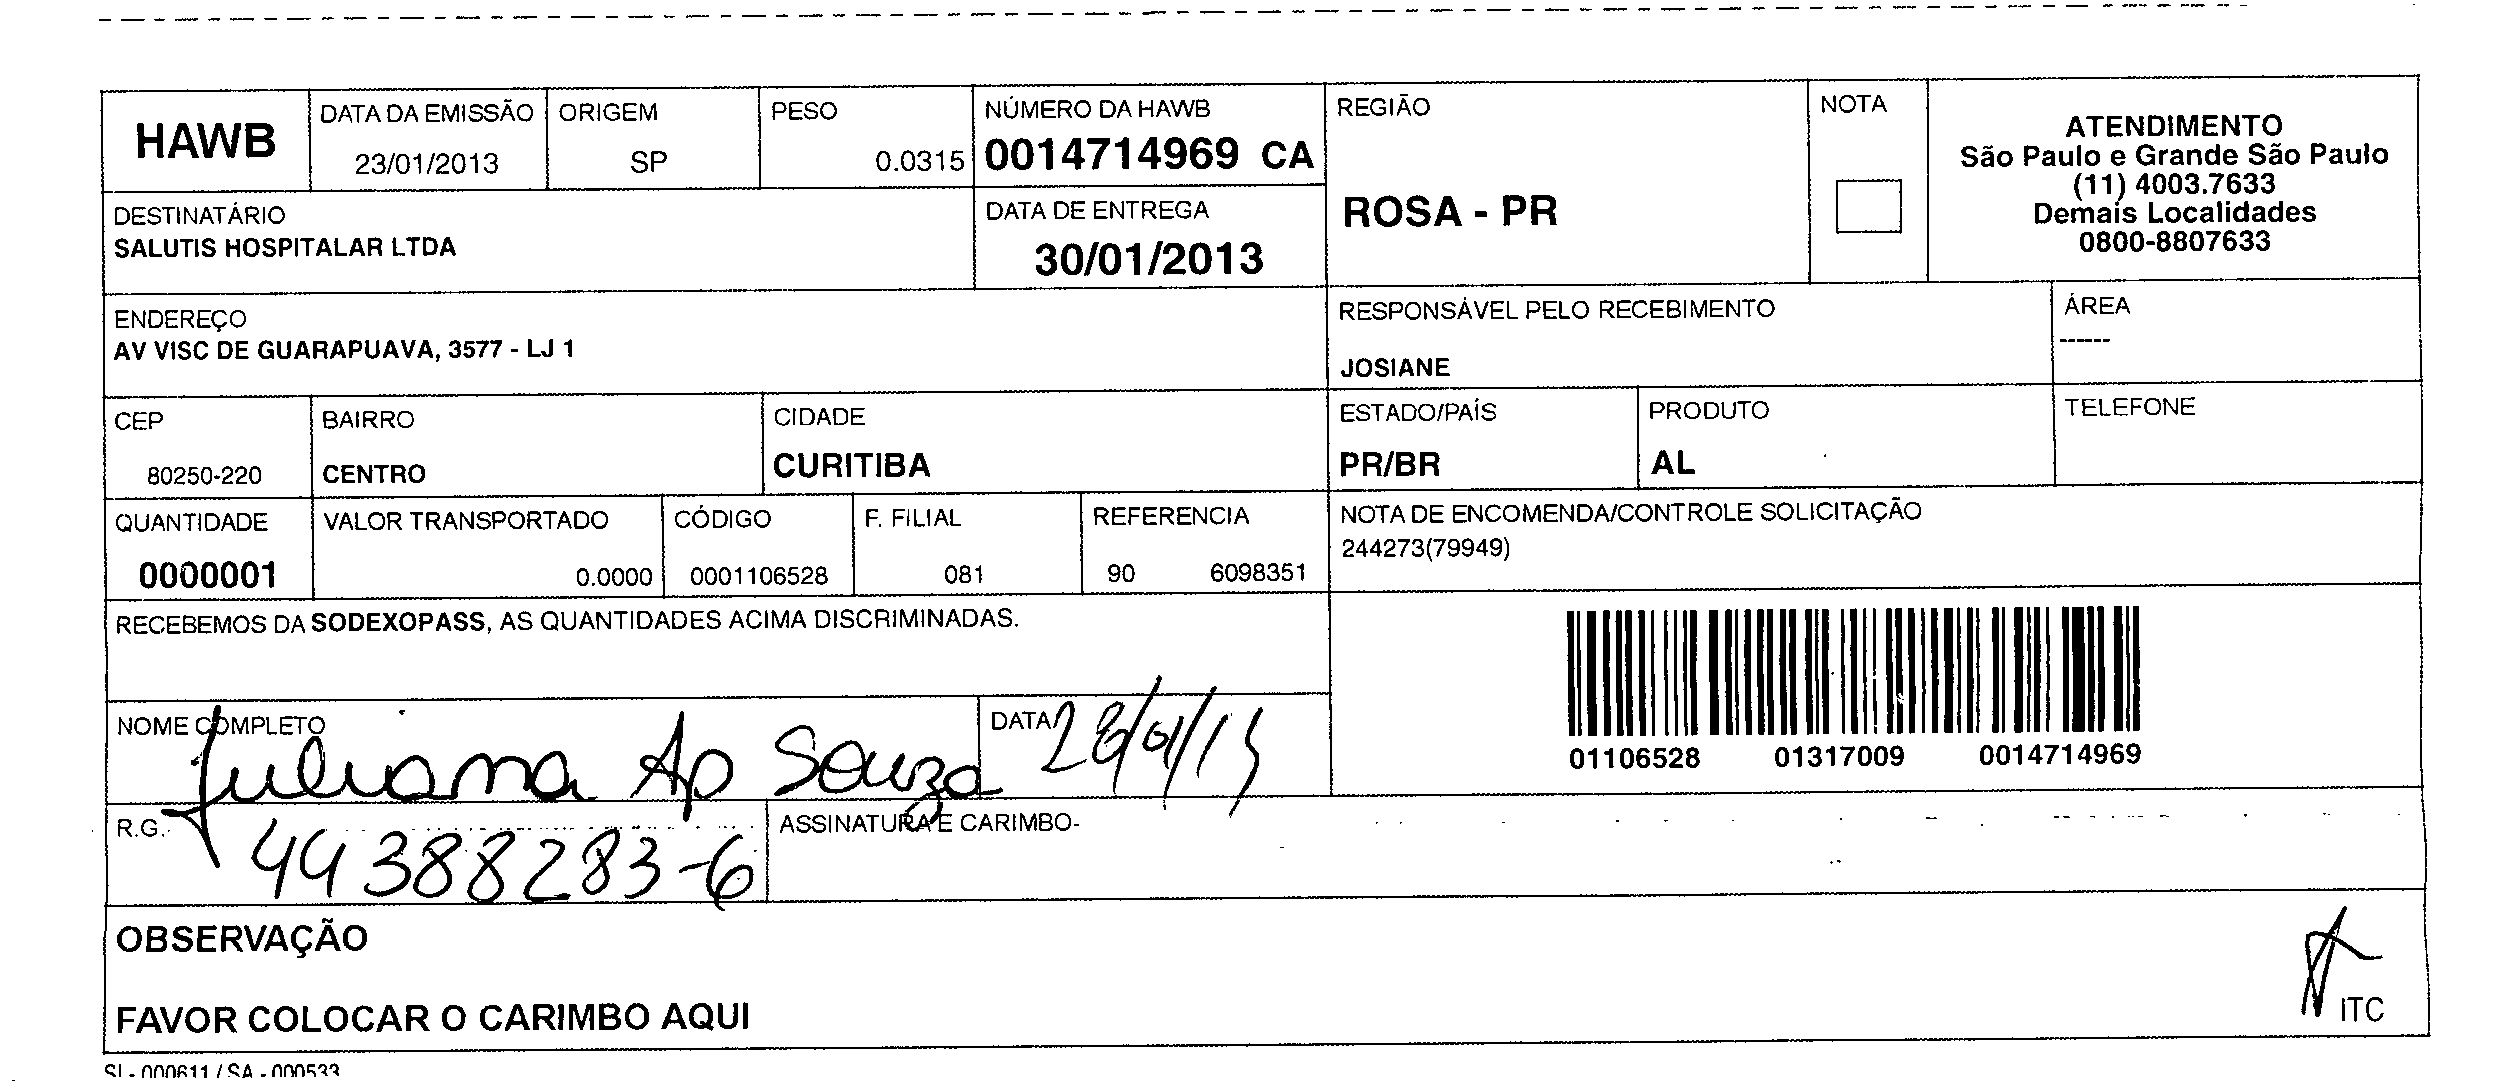 HAWB
DATA DA EMISSÃO
23/01/2013
ORIGEM
SP
PESO
0.0315
NÚMERO DA HAWB
0014714969 CA
REGIÃO
ROSA - PR
NOTA
ATENDIMENTO
São Paulo e Grande São Paulo
(11) 4003.7633
Demais Localidades
0800-8807633
DESTINATÁRIO
SALUTIS HOSPITALAR LTDA
DATA DE ENTREGA
30/01/2013
ENDEREÇO
AV VISC DE GUARAPUAVA, 3577 - LJ 1
RESPONSÁVEL PELO RECEBIMENTO
JOSIANE
ÁREA
------
CEP
80250-220
BAIRRO
CENTRO
CIDADE
CURITIBA
ESTADO/PAÍS
PR/BR
PRODUTO
AL
TELEFONE
QUANTIDADE
0000001
VALOR TRANSPORTADO
0.0000
CÓDIGO
0001106528
F. FILIAL
081
REFERENCIA
90 6098351
NOTA DE ENCOMENDA/CONTROLE SOLICITAÇÃO
244273(79949)
RECEBEMOS DA SODEXOPASS, AS QUANTIDADES ACIMA DISCRIMINADAS.
01106528 01317009 0014714969
NOME COMPLETO
Juliana Ap Souza
DATA
28/01/13
R.G.
44388283-6
ASSINATURA E CARIMBO
OBSERVAÇÃO
FAVOR COLOCAR O CARIMBO AQUI
ITC
SI - 000611 / SA - 000533